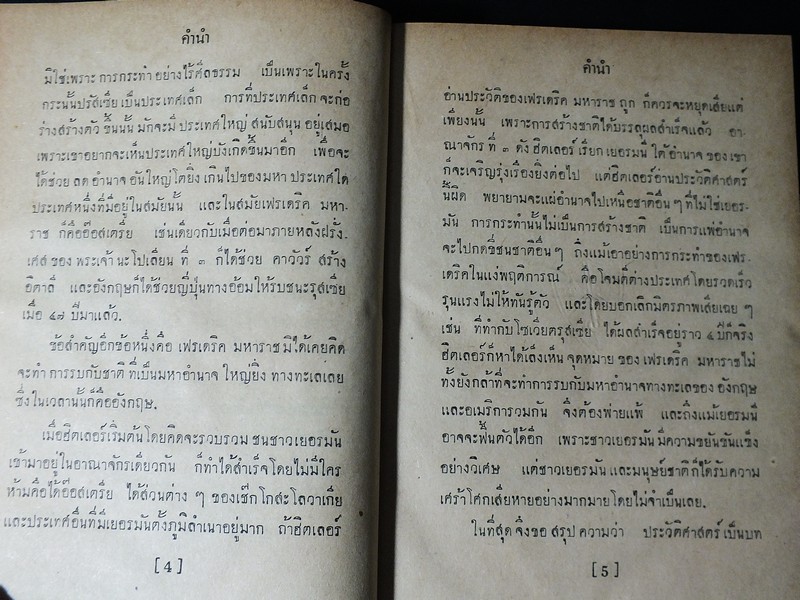 คำนำ
มิใช่เพราะ การกระทำ อย่างไร้ศีลธรรม เป็นเพราะในครั้ง
กระนั้นปรัสเซีย เป็นประเทศเล็ก การที่ประเทศเล็ก จะก่อ
ร่างสร้างตัว ขึ้นนั้น มักจะมี ประเทศใหญ่ สนับสนุน อยู่เสมอ
เพราะเขาอยากจะเห็นประเทศใหญ่บังเกิดขึ้นมาอีก เพื่อจะ
ได้ช่วย ลด อำนาจ อันใหญ่โตยิ่ง เกินไปของมหา ประเทศใด
ประเทศหนึ่งที่มีอยู่ในสมัยนั้น และในสมัยเฟรเดริค มหา-
ราช ก็คืออ๊อสเตรีย เช่นเดียวกับเมื่อต่อมาภายหลังฝรั่ง-
เศส ของ พระเจ้า นะโปเลียน ที่ ๓ ก็ได้ช่วย คาวัวร์ สร้าง
อิตาลี และอังกฤษก็ได้ช่วยญี่ปุ่นทางอ้อมให้รบชนะรุสเซีย
เมื่อ ๔๗ ปีมาแล้ว.
ข้อสำคัญอีกข้อหนึ่งคือ เฟรเดริค มหาราช มิได้เคยคิด
จะทำ การรบกับชาติ ที่เป็นมหาอำนาจ ใหญ่ยิ่ง ทางทะเลเลย
ซึ่งในเวลานั้นก็คืออังกฤษ.
เมื่อฮิตเลอร์เริ่มต้นโดยคิดจะรวบรวม ชนชาวเยอรมัน
เข้ามาอยู่ในอาณาจักรเดียวกัน ก็ทำได้สำเร็จโดยไม่มีใคร
ห้ามคือได้อ๊อสเตรีย ได้ส่วนต่าง ๆ ของเช๊กโกสะโลวาเกีย
และประเทศอื่นที่มีเยอรมันตั้งภูมิลำเนาอยู่มาก ถ้าฮิตเลอร์
[ 4 ]
คำนำ
อ่านประวัติของเฟรเดริค มหาราช ถูก ก็ควรจะหยุดเสียแต่
เพียงนั้น เพราะการสร้างชาติได้บรรลุผลสำเร็จแล้ว อา-
ณาจักร ที่ ๓ ดัง ฮิตเลอร์ เรียก เยอรมนี ใต้ อำนาจ ของ เขา
ก็จะเจริญรุ่งเรืองยิ่งต่อไป แต่ฮิตเลอร์อ่านประวัติศาสตร์
นี้ผิด พยายามจะแผ่อำนาจไปเหนือชาติอื่น ๆ ที่ไม่ใช่เยอร-
มัน การกระทำนั้นไม่เป็นการสร้างชาติ เป็นการแผ่อำนาจ
จะไปกดขี่ชนชาติอื่น ๆ ถึงแม้เอาอย่างการกระทำของเฟร-
เดริคในแง่พฤติการณ์ คือโจมตีต่างประเทศโดยรวดเร็ว
รุนแรงไม่ให้ทันรู้ตัว และโดยบอกเลิกมิตรภาพเสียเฉย ๆ
เช่น ที่ทำกับโซเวียตรุสเซีย ได้ผลสำเร็จอยู่ราว ๔ ปีก็จริง
ฮิตเลอร์ก็หาได้เล็งเห็น จุดหมาย ของ เฟรเดริค มหาราชไม่
ทั้งยังกล้าที่จะทำการรบกับมหาอำนาจทางทะเลของ อังกฤษ
และอเมริการวมกัน จึงต้องพ่ายแพ้ และถึงแม้เยอรมนี
อาจจะฟื้นตัวได้อีก เพราะชาวเยอรมัน มีความขยันขันแข็ง
อย่างวิเศษ แต่ชาวเยอรมัน และมนุษย์ชาติ ก็ได้รับความ
เศร้าโศกเสียหายอย่างมากมายโดยไม่จำเป็นเลย.
ในที่สุด จึ่งขอ สรุป ความว่า ประวัติศาสตร์ เป็นบท
[ 5 ]